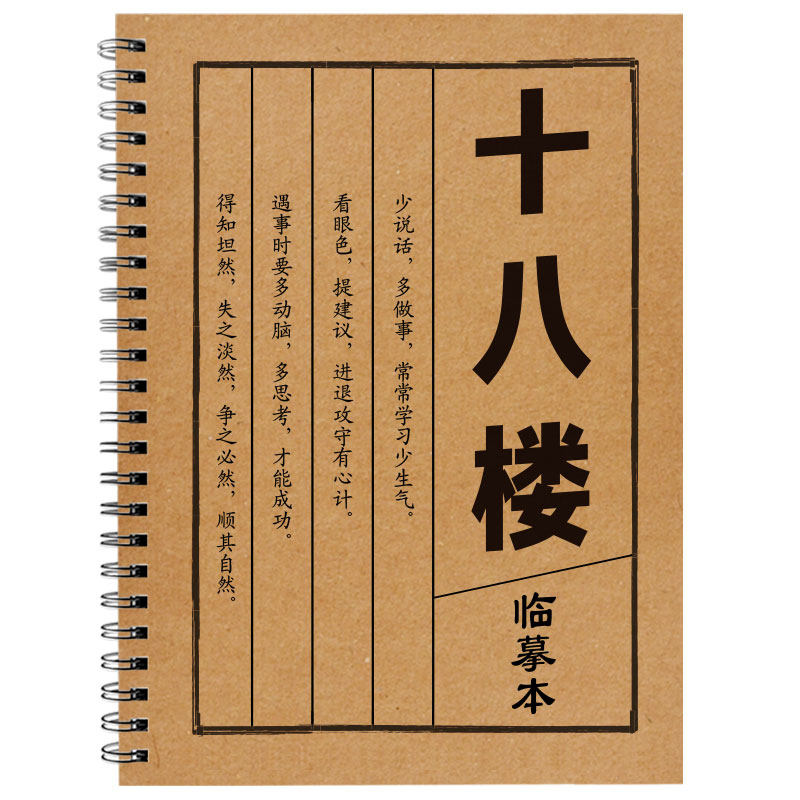 十八楼
临摹本
少说话，多做事，常常学习少生气。
看眼色，提建议，进退攻守有心计。
遇事时要多动脑，多思考，才能成功。
得知坦然，失之淡然，争之必然，顺其自然。